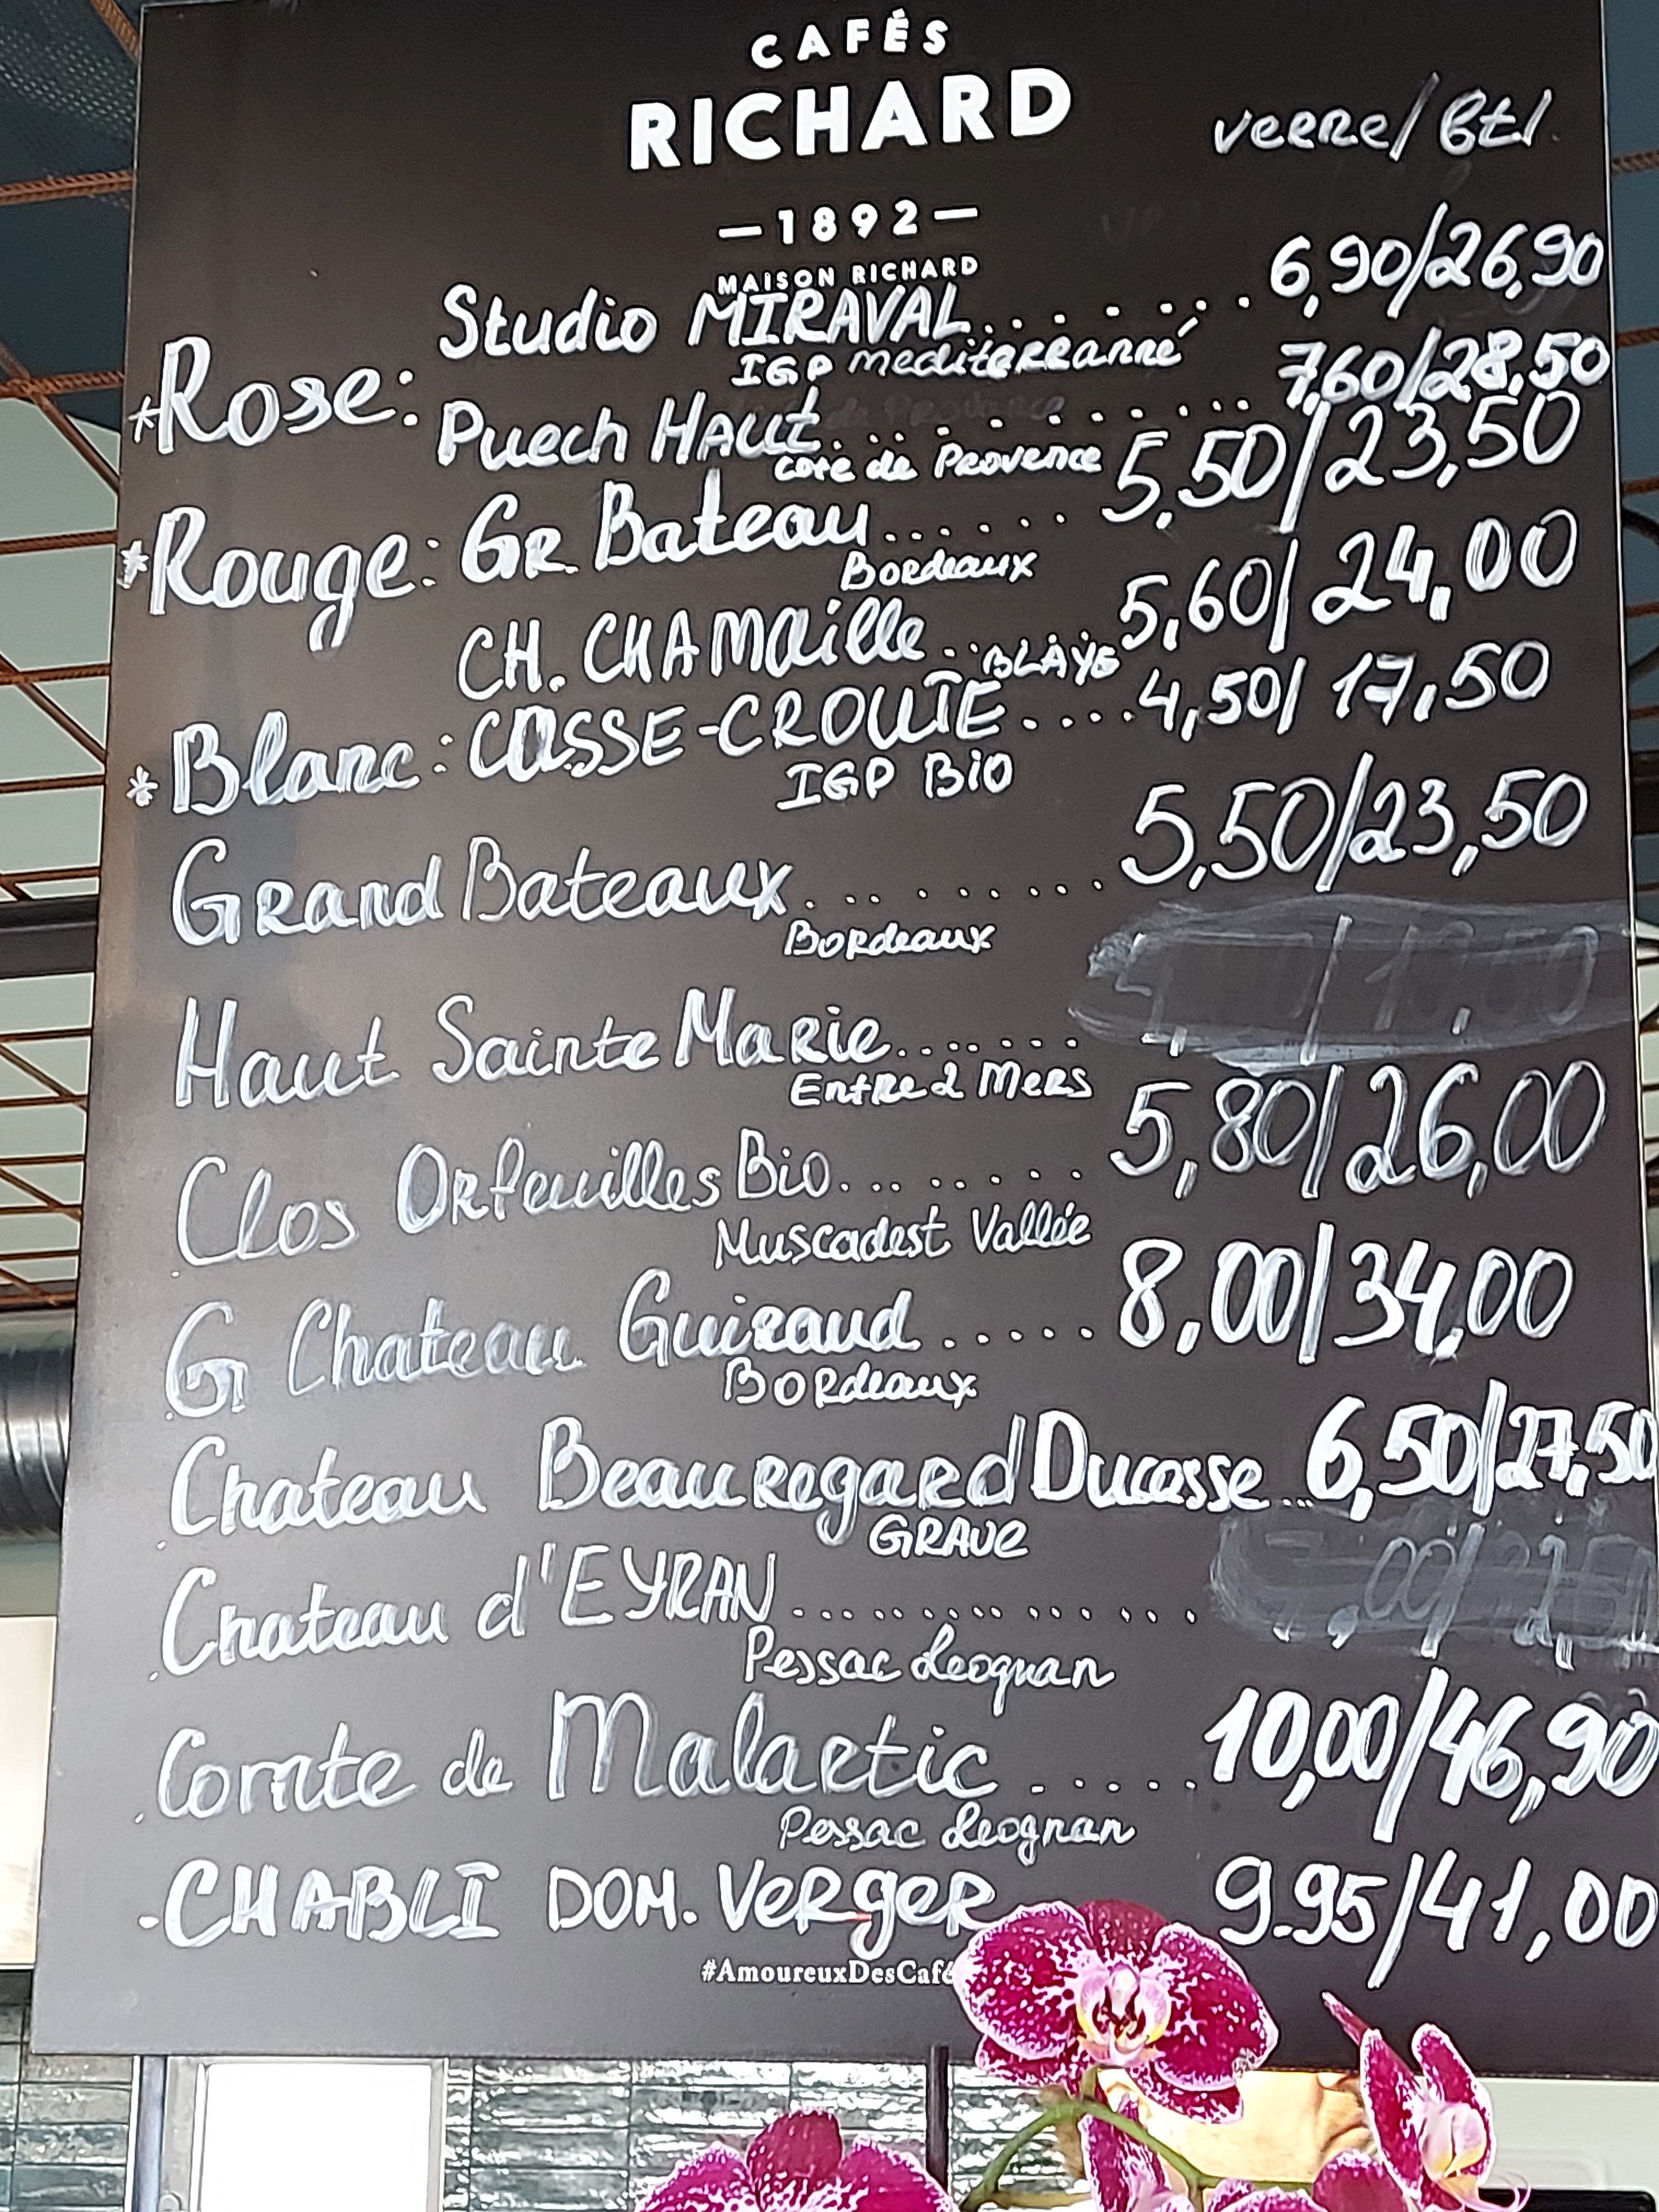 CAFÉS
RICHARD
verre/btl
—1892—
MAISON RICHARD
*Rose: Studio MIRAVAL....... 6,90/26,90
IGP mediterranné
Puech HAUt......... 7,60/28,50
Cote de Provence
*Rouge: GR. Bateau...... 5,50/23,50
Bordeaux
CH. CHAMaille.. BLAYE 5,60/24,00
*Blanc: CASSE-CROUTE.... 4,50/17,50
IGP Bio
Grand Bateaux......... 5,50/23,50
Bordeaux
Haut Sainte Marie.......
Entre 2 Mers
Clos Orfeuilles Bio........ 5,80/26,00
Muscadest Vallée
Gr Chateau Guiraud...... 8,00/34,00
Bordeaux
Chateau Beauregard Ducasse... 6,50/27,50
GRAVE
Chateau d'EYRAN.............
Pessac Leognan
Comte de Malartic...... 10,00/46,90
Pessac Leognan
-CHABLI DOM. Verger 9.95/41,00
#AmoureuxDesCafé